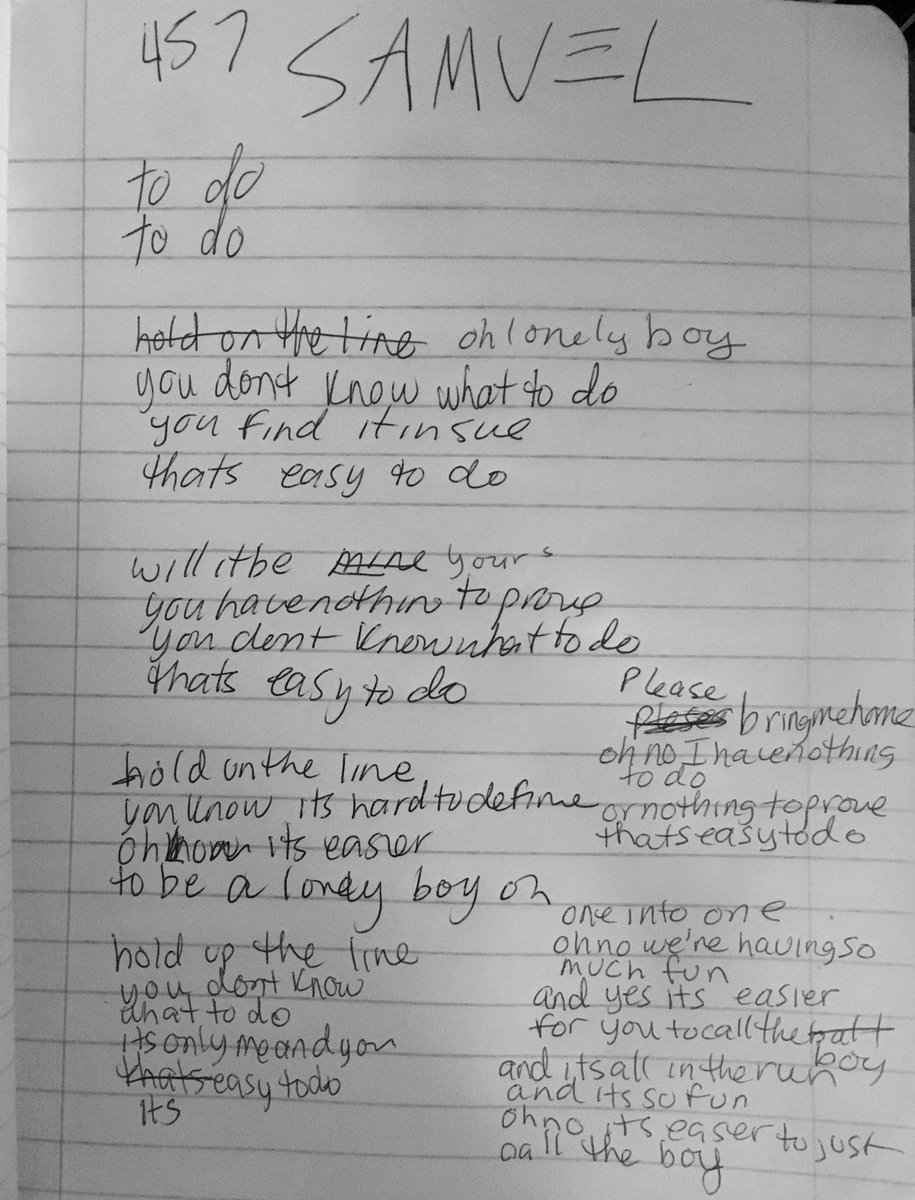 457 SAMUEL
to do
to do
hold on the line oh lonely boy
you dont know what to do
you find it in sue
thats easy to do
will it be mine yours
you have nothin to prove
you dont know what to do
thats easy to do
hold on the line
you know its hard to define
oh its easier
to be a lonely boy oh
hold up the line
you dont know
what to do
its only me and you
thats easy to do
Its
Please
bring me home
oh no I have nothing
to do
or nothing to prove
thats easy to do
one into one
oh no we're having so
much fun
and yes its easier
for you to call the
boy
and its all in the run
and its so fun
oh no its easer to just
call the boy